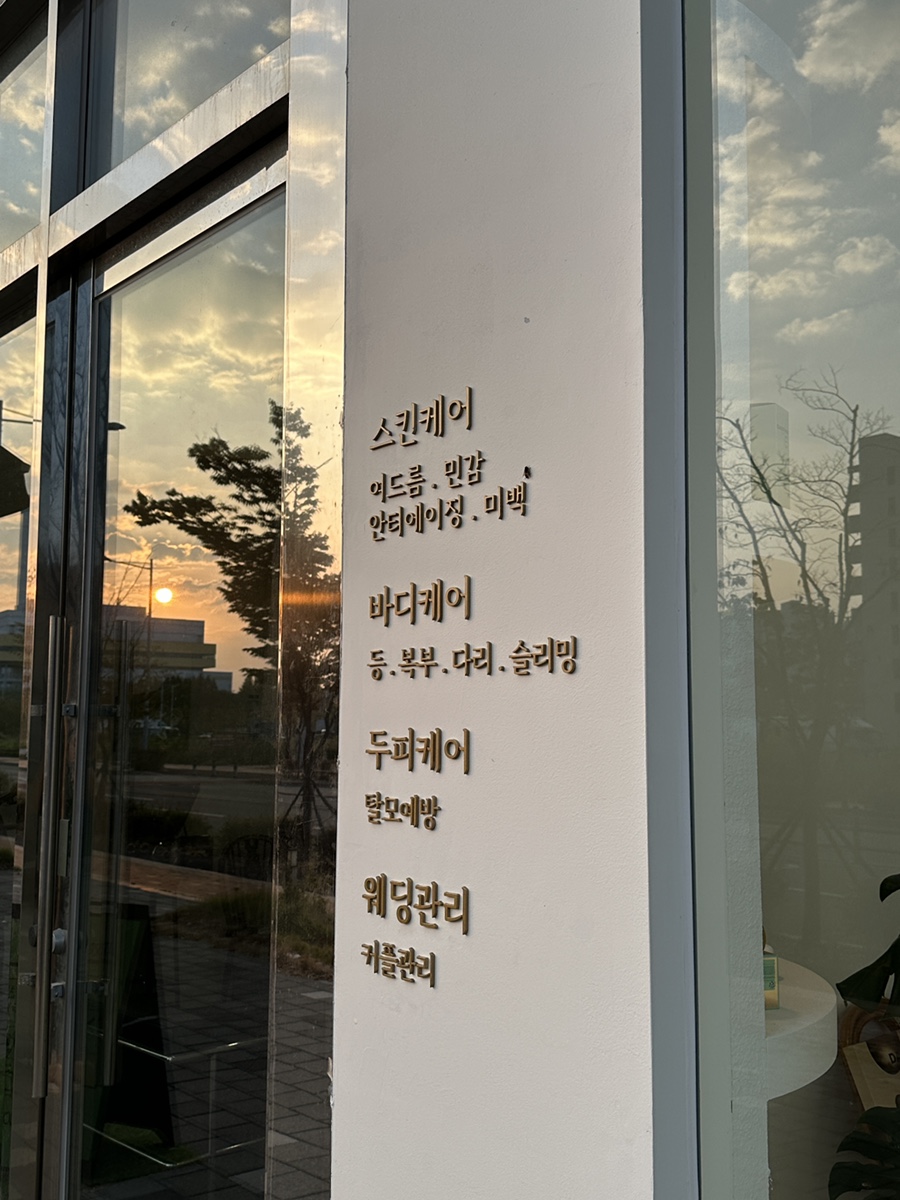 스킨케어
여드름 . 민감
안티에이징 . 미백
바디케어
등 . 복부 . 다리 . 슬리밍
두피케어
탈모예방
웨딩관리
커플관리